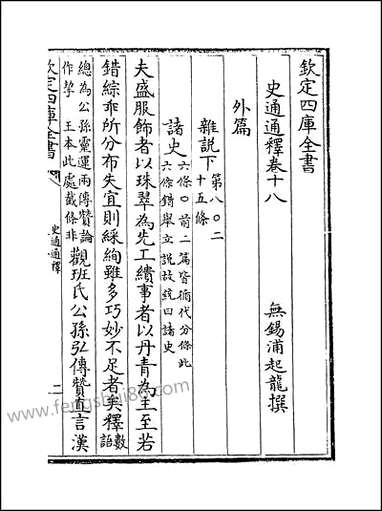 欽定四庫全書
史通通釋卷十八
無錫浦起龍撰
外篇
雜說下第八〇二十五條
諸史六條〇前二篇皆循代分條此六條錯舉立說故統曰諸史
夫盛服飾者以珠翠為先工繢事者以丹青為主至若
錯綜乖所分布失宜則綵絢雖多巧妙不足者矣釋數語
總為公孫靈運兩傳贊論作挈 王本此處截條非觀班氏公孫弘傳贊直言漢
欽定四庫全書
史通通釋
二